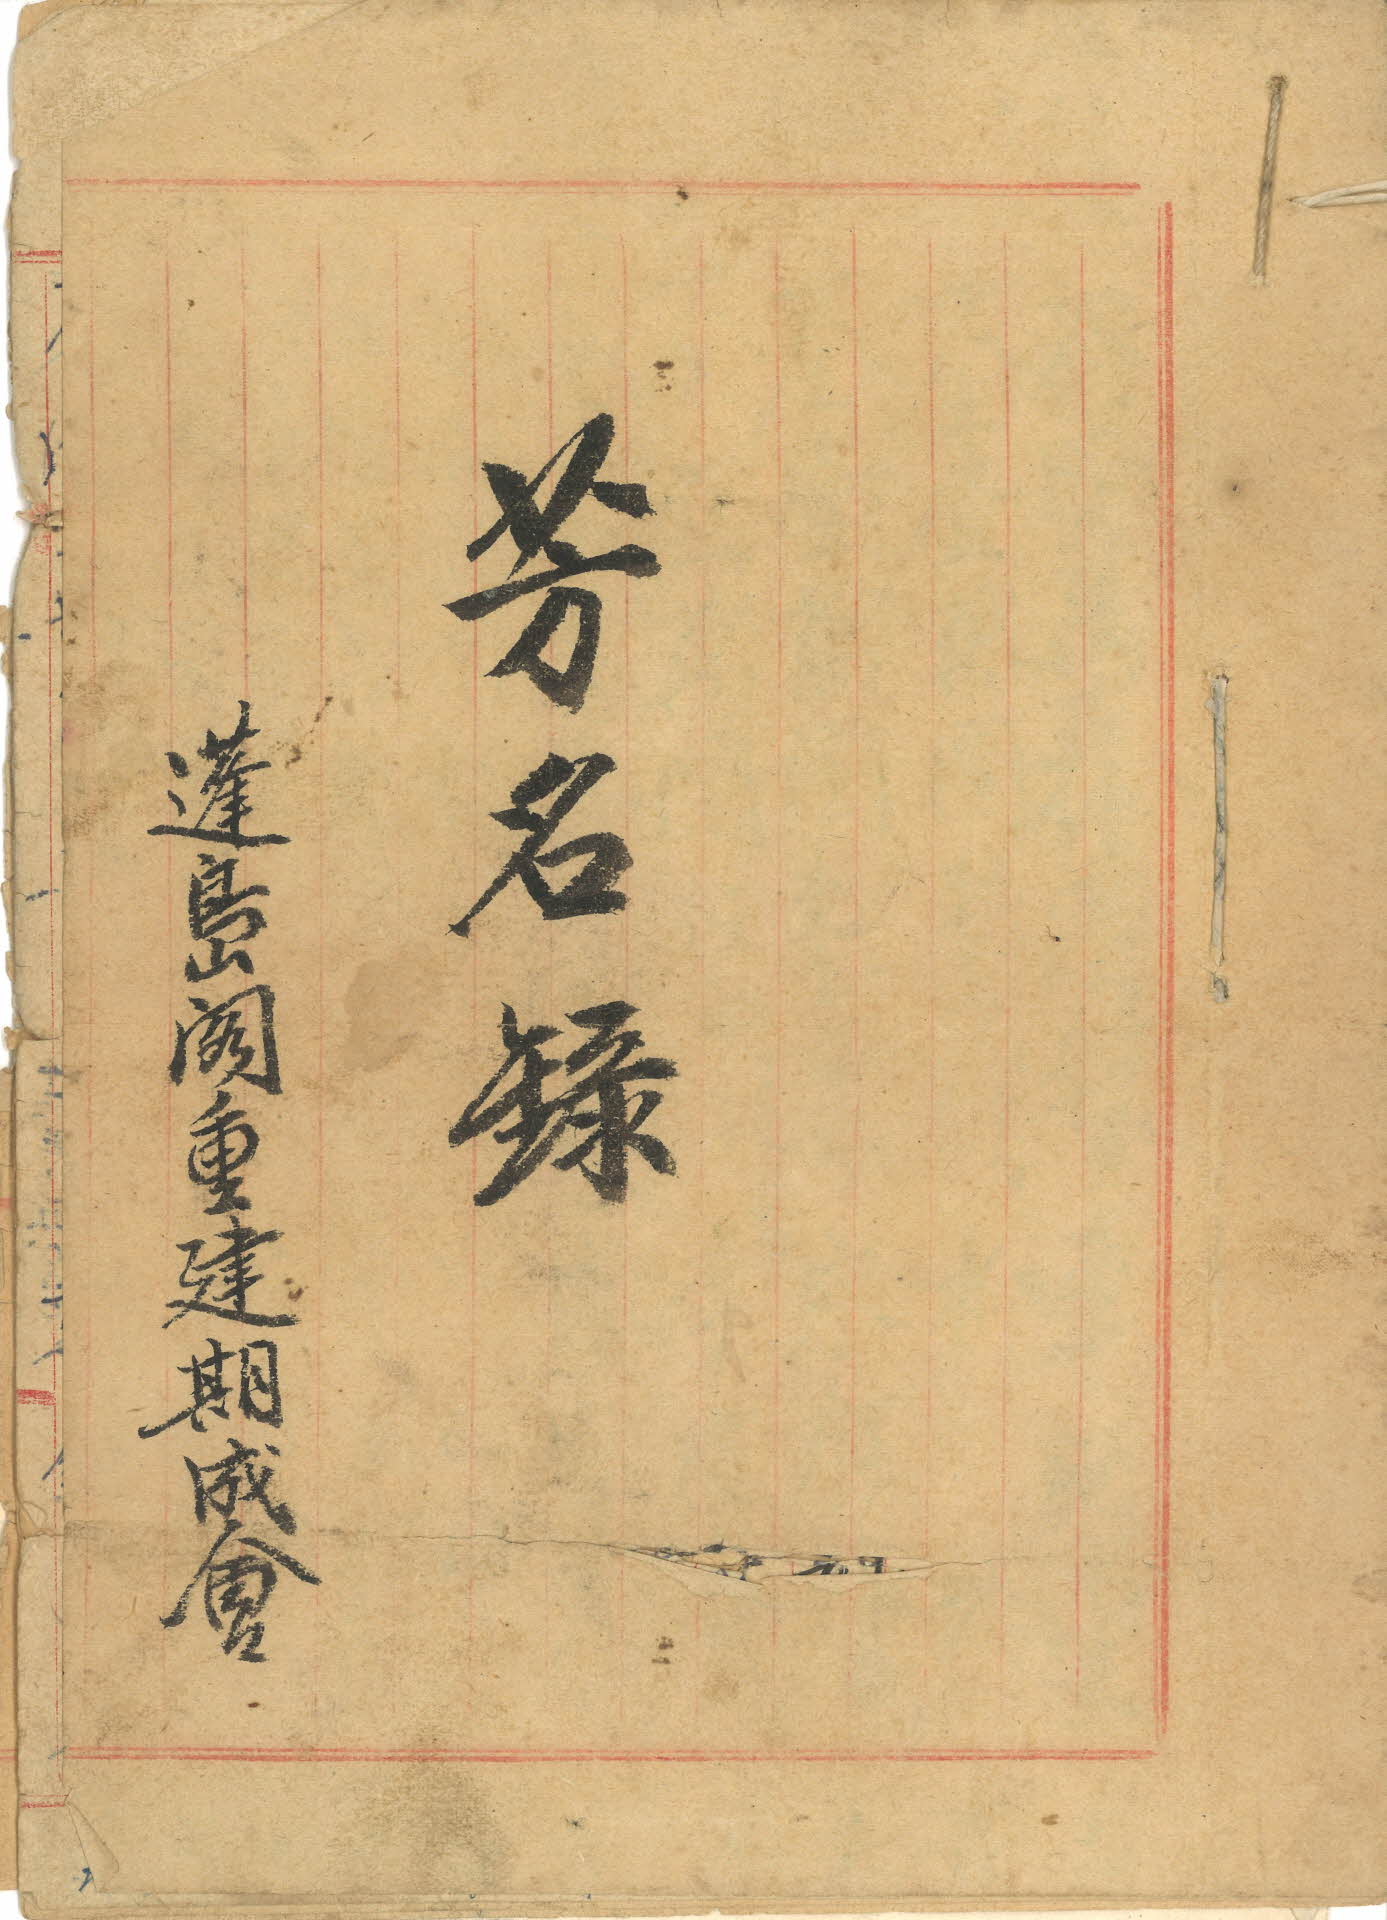 芳名錄
蓬島閣重建期成會